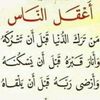 أَعْقَلُ النَّاسِ
مَنْ تَرَكَ الدُّنْيَا قَبْلَ أَنْ تَتْرُكَهُ
وَأَنَارَ قَبْرَهُ قَبْلَ أَنْ يَسْكُنَهُ
وَأَرْضَى رَبَّهُ قَبْلَ أَنْ يَلْقَاهُ